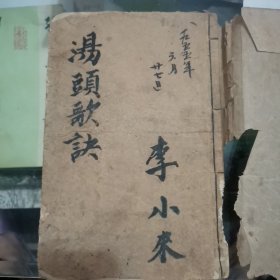 湯頭歌訣
一九五五年
六月
廿七日
李小来